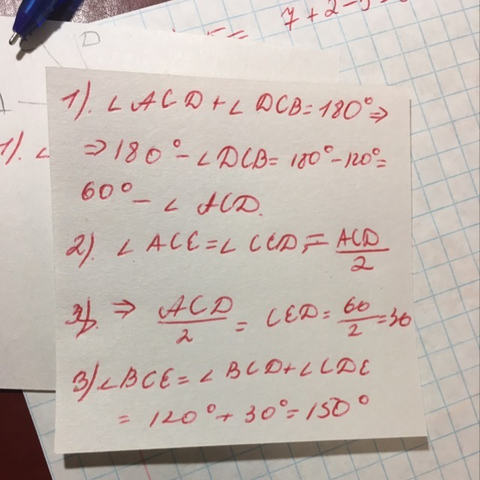 7+2-
D
1). ∠
1). ∠ACD+∠DCB=180°⇒
⇒180°-∠DCB=180°-120°=
60° - ∠ ACD.
2) ∠ ACE=∠ CED,= ACD/2
⇒ ACD/2 = CED= 60/2 =30
3) ∠BCE=∠ BCD+∠CDE
= 120°+ 30°=150°